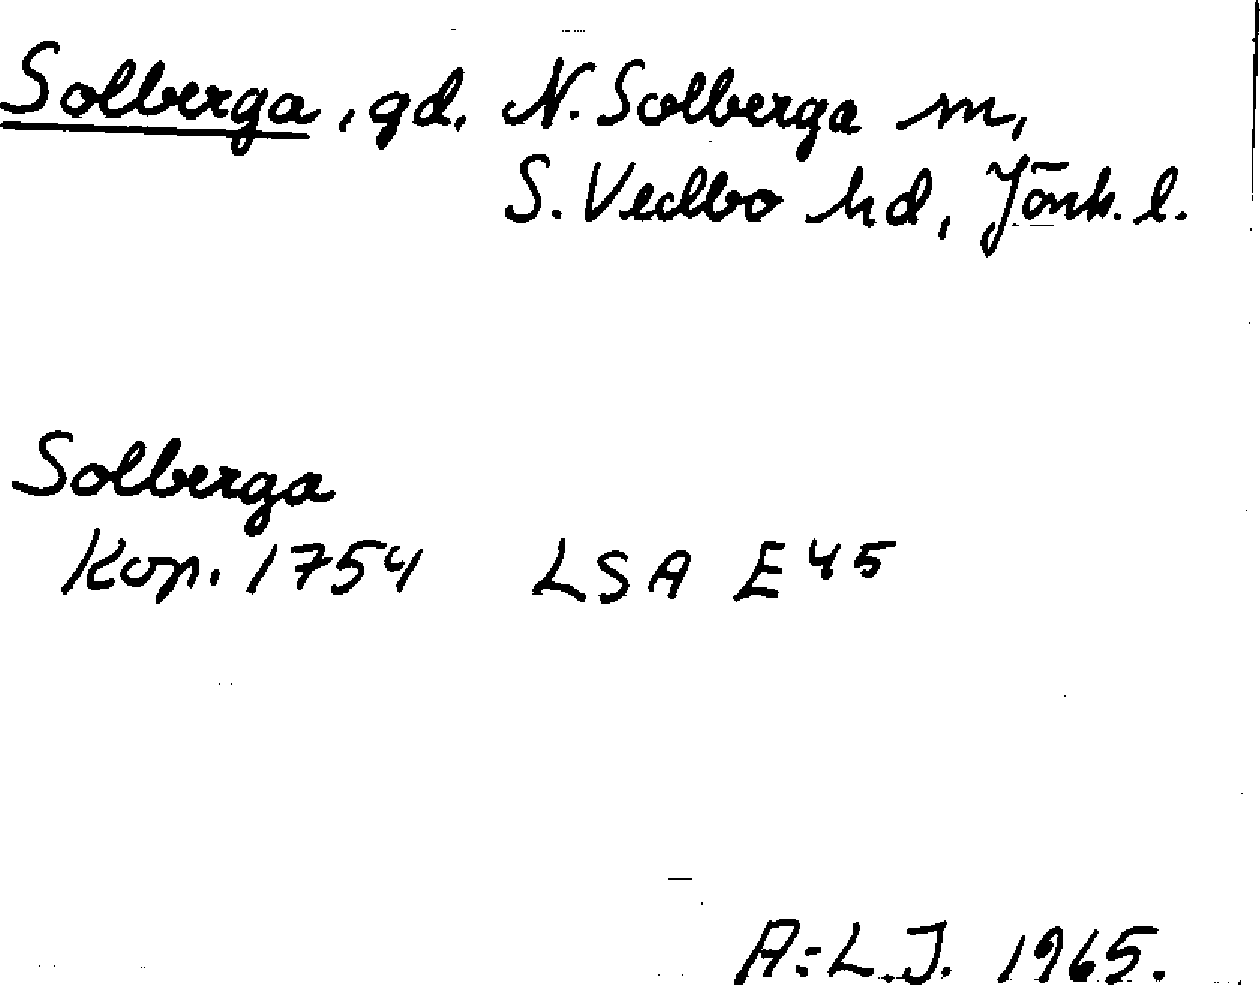 Solberga, gd. N. Solberga sn,
S. Vedbo hd, Jönk. l.
Solberga
Kop. 1754 LSA E 45
A:L.J. 1965.